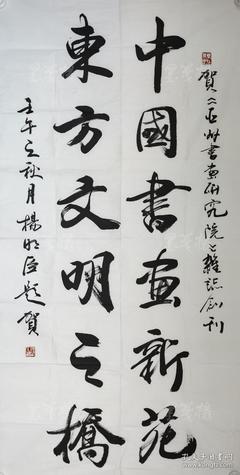 賀《亞州書畫研究院》雜誌創刊
中國書畫新苑
東方文明之橋
壬午之秋月楊明臣題賀